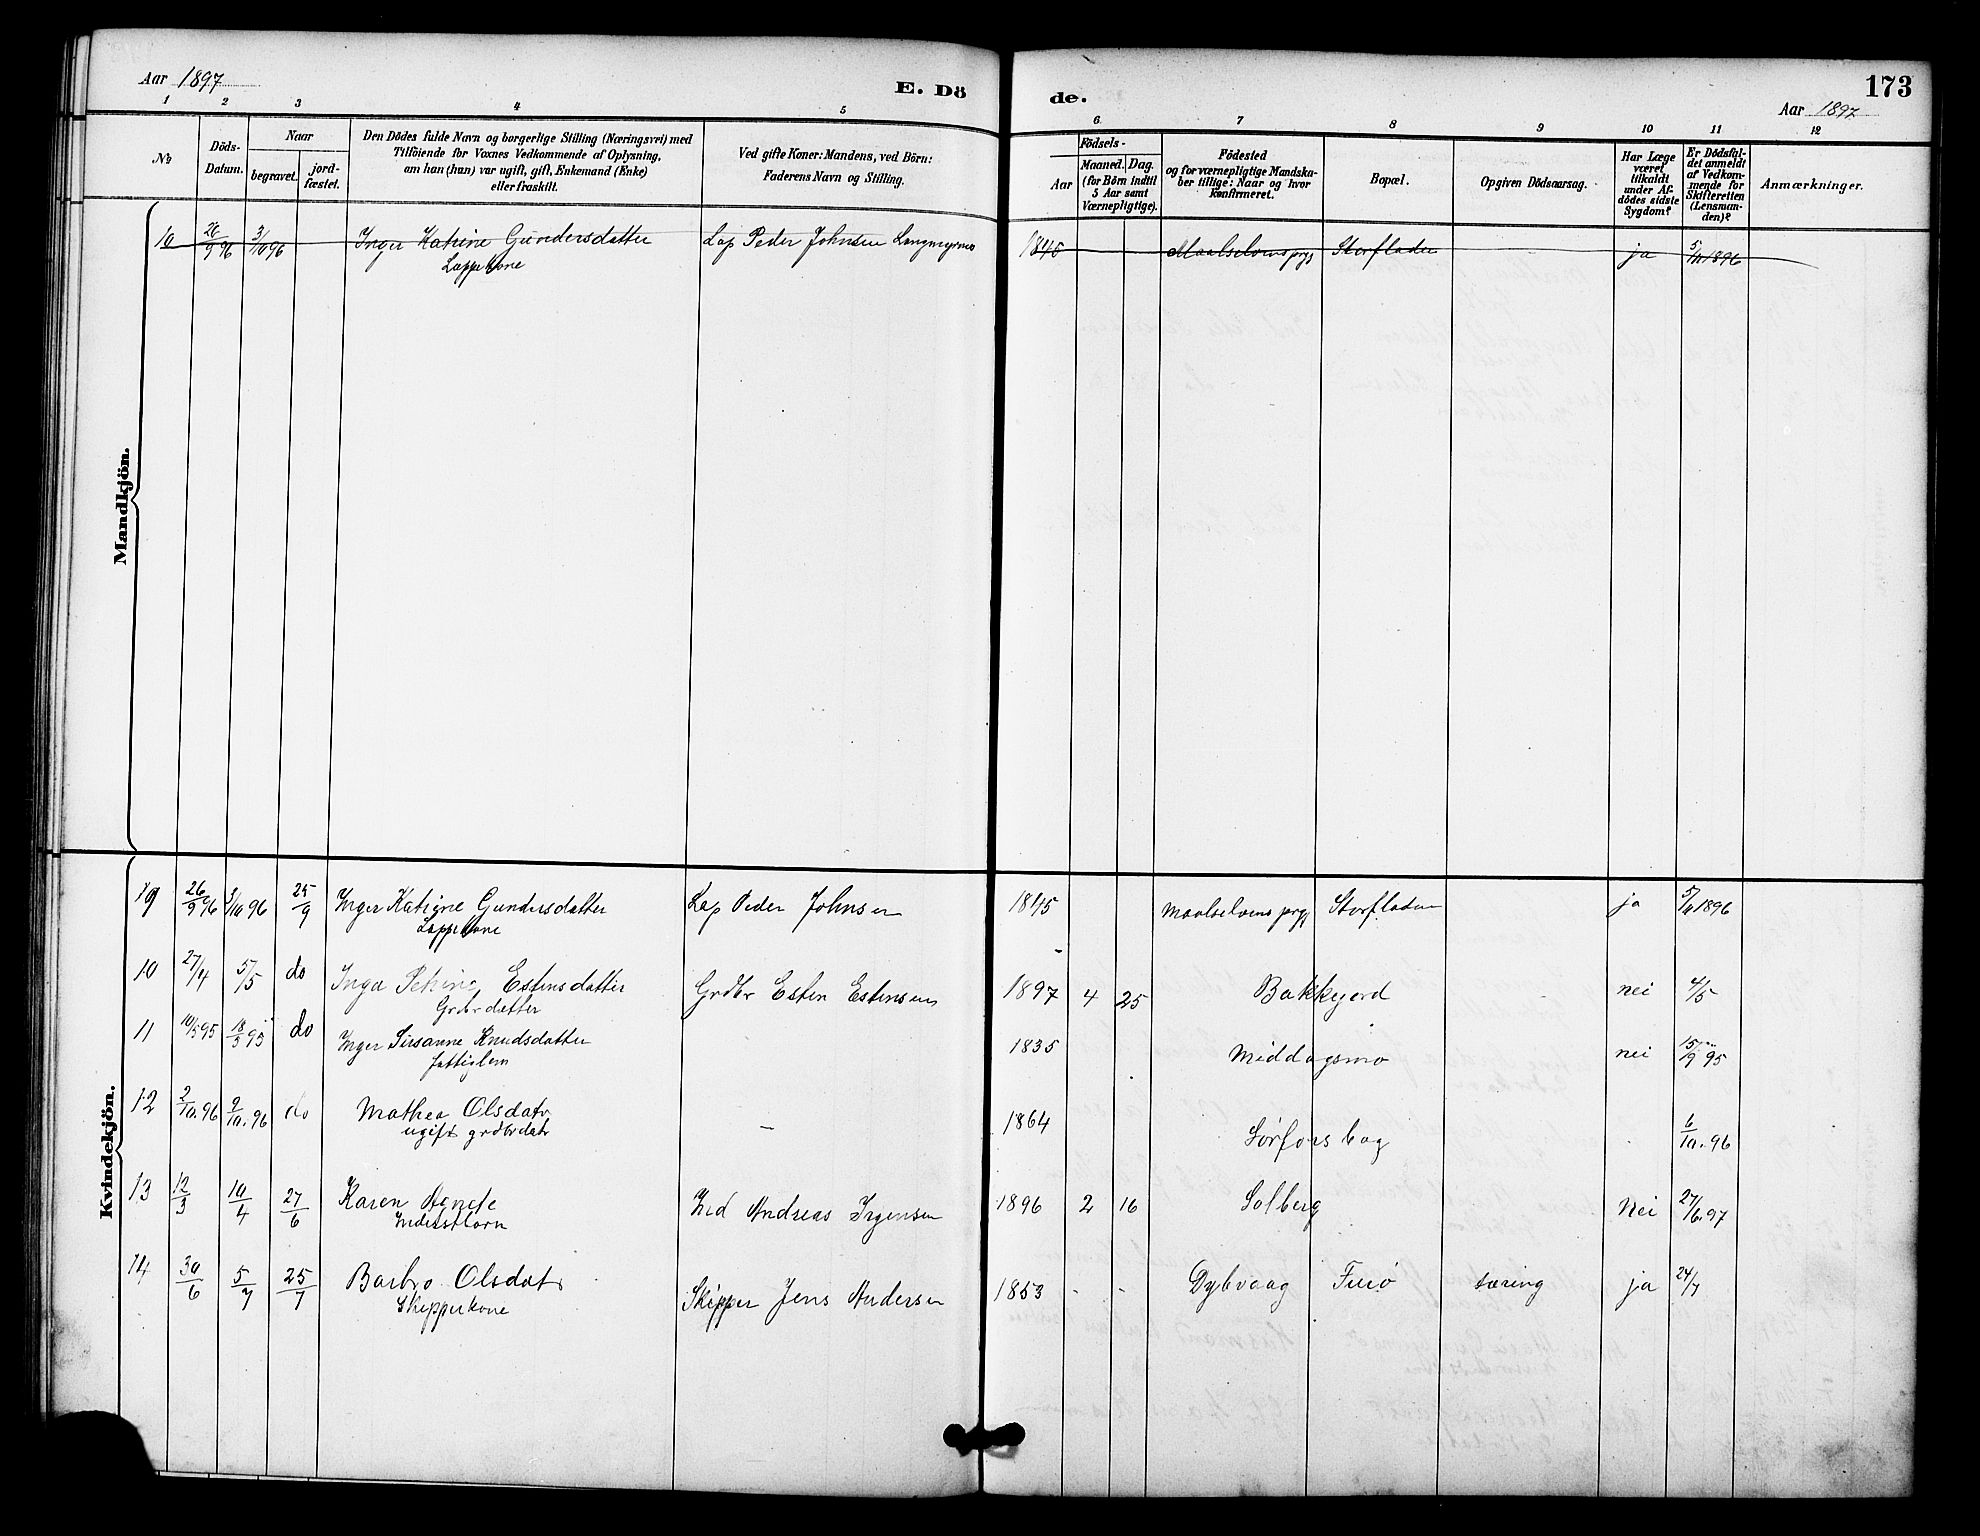 Aar 1897
E. Dö
de.
173
Aar 1897
1 2 3 4 5 6. 7 8 9 10 11 12
No
Döds-
Datum.
Naar
begravet.
jord-
fæstet.
Den Dödes fulde Navn og borgerlige Stilling (Næringsvei) med
Tilföiende for Voxnes Vedkommende af Oplysning,
om han (hun) var ugift, gift, Enkemand (Enke)
eller fraskilt.
Ved gifte Koner: Mandens, ved Börn:
Faderens Navn og Stilling.
Födsels-
Aar
Maaned. Dag.
(for Börn indtil
5 Aar samt
Værnepligtige).
Födested
og for værnepligtige Mandska-
ber tillige: Naar og hvor
konfirmeret.
Bopæl.
Opgiven Dödsaarsag.
Har Læge
været
tilkaldt
under Af-
dödes sidste
Sygdom?
Er Dödsfal-
det anmeldt
af Vedkom-
mende for
Skifteretten
(Lensman-
den)?
Anmærkninger.
Mandkjön.
10 26/9 96 3/10 96 Inger Katrine Gundersdatter Lap Peder Johnsen Langmyrmo 1845 Maalselvens prgj Storfladen ja 5/11 1896
Lappekone
Kvindekjön.
9 26/9 96 3/10 96 25/9 Inger Katrine Gundersdatter Lap Peder Johnsen 1845 Maalselvens prgj Storfladen ja 5/11 1896
Lappekone
10 27/4 5/5 do Inga Petrine Estensdatter Grdbr Esten Estensen 1897 4 25 Bakkejord nei 4/5
Grdbrdatter
11 10/5 95 18/5 95 do Inger Susanne Knudsdatter 1835 Middagsmo nei 15/9 95
fattiglem
12 2/10. 96 9/10. 96 do Mathea Olsdatr — 1864 Sørforsbag 6/10. 96
ugift grdbrdatr
13 12/3 10/4 27/6 Karen Agnete Ind Andreas Irgensen 1896 2 16 Solberg Nei 27/6.97
Inderstbarn
14 30/6 5/7 25/7 Barbro Olsdatr Skipper Jens Andersen 1853 - - Dybvaag Furø tæring ja 24/7
Skipperkone